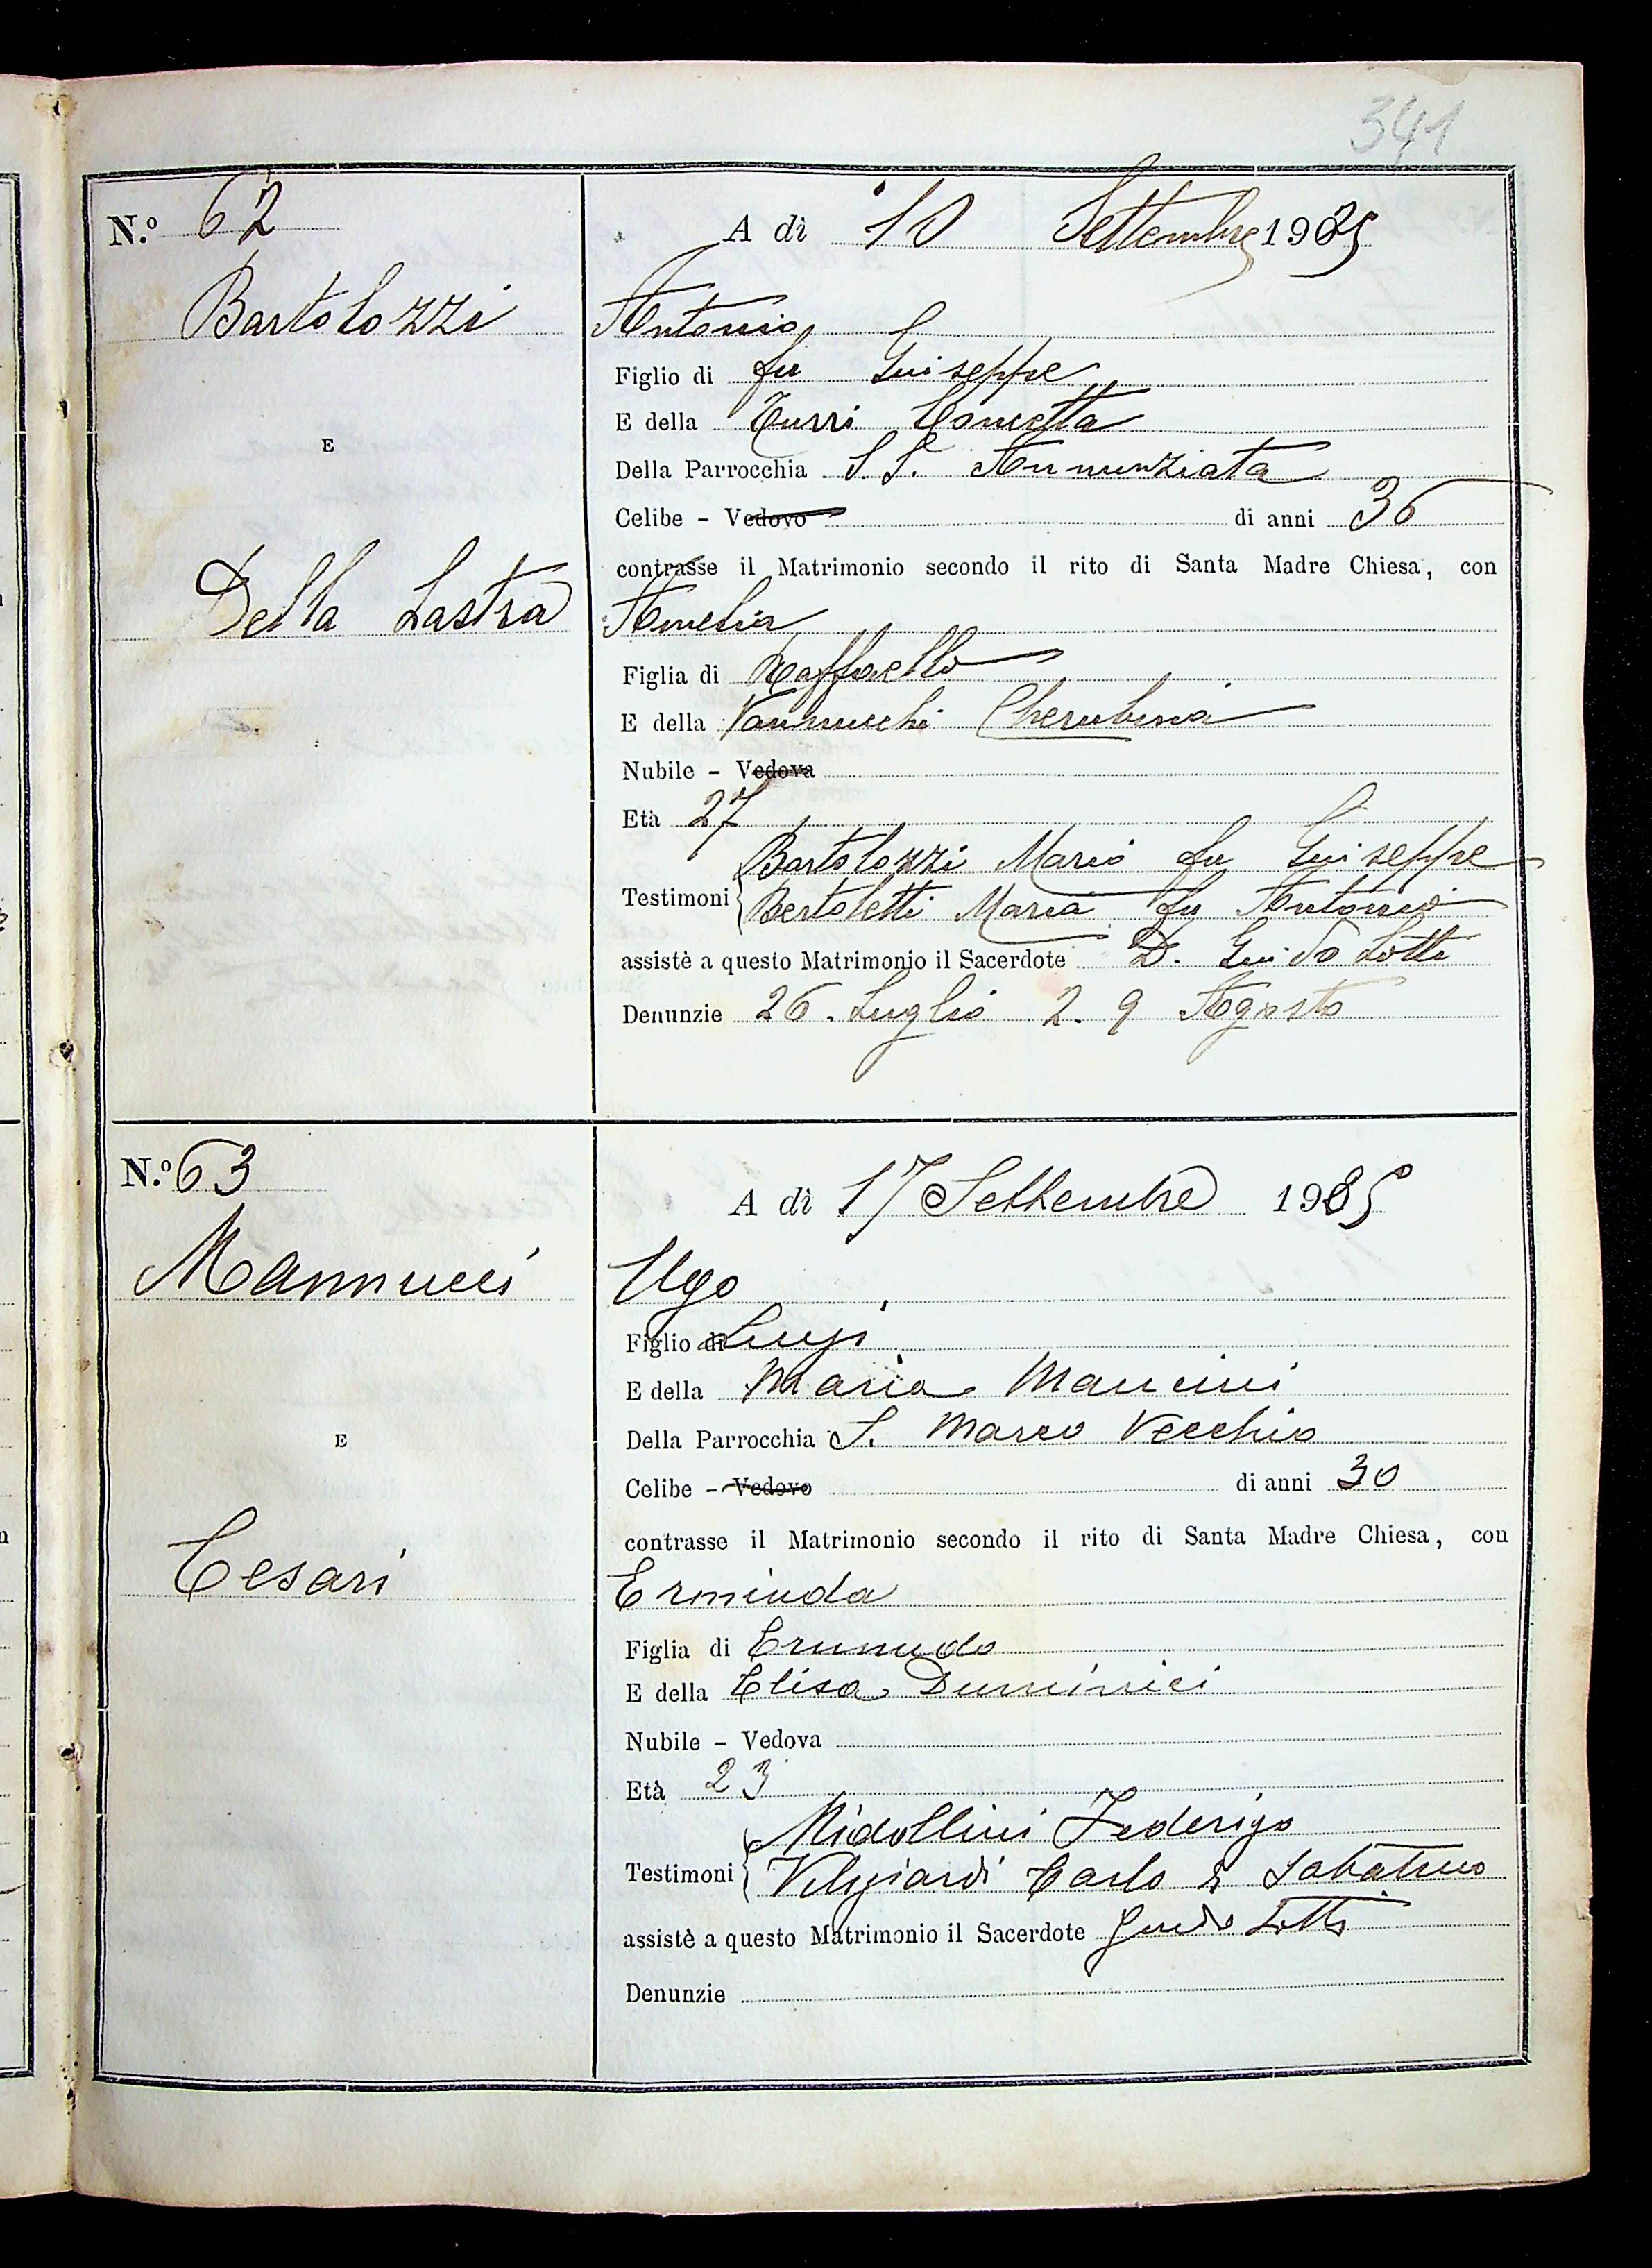 341
N.º 62
A dì 10 Settembre 1925
Bartolozzi
Antonio
Figlio di fu Giuseppe
E della Turri Concetta
E
Della Parrocchia S S. Annunziata
Celibe - Vedovo di anni 36
contrasse il Matrimonio secondo il rito di Santa Madre Chiesa, con
Della Lastra
Amelia
Figlia di Raffaello
E della Vannucchi Cherubina
Nubile - Vedova
Età 27
Bartolozzi Mario fu Giuseppe
Testimoni
Bertoletti Maria fu Antonio
assistè a questo Matrimonio il Sacerdote D. Guido Lotti
Denunzie 26. Luglio 2. 9 Agosto
N.º 63
A dì 17 Settembre 1925
Mannucci
Ugo
Figlio di Luigi
E della Maria Mancini
E
Della Parrocchia S. Marco Vecchio
Celibe - Vedovo di anni 30
contrasse il Matrimonio secondo il rito di Santa Madre Chiesa, con
Cesari
Erminda
Figlia di
E della Elisa Duminici
Nubile - Vedova
Età 23
Midollini Federigo
Testimoni
Carlo di Sabatino
assistè a questo Matrimonio il Sacerdote Guido Lotti
Denunzie